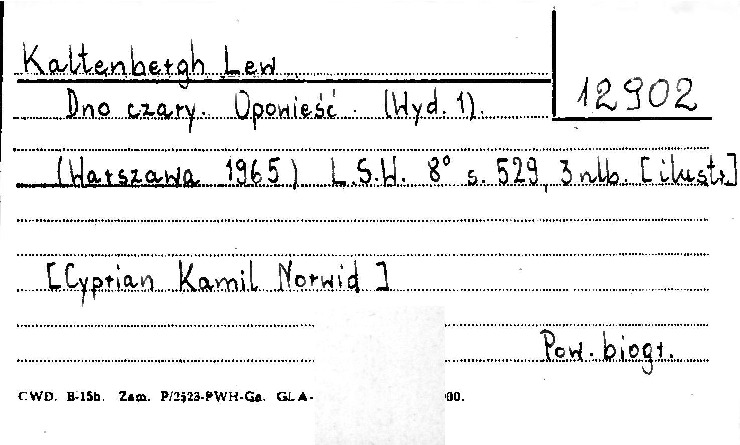 Kaltenbergh Lew
12902
Dno czary. Opowieść. (Wyd. 1).
(Warszawa 1965) L.S.W. 8° s. 529, 3 nlb. [ilustr.]
[Cyprian Kamil Norwid]
Pow. biogr.
CWD. B-15b. Zam. P/2523-PWH-Ga. GLA- 00.